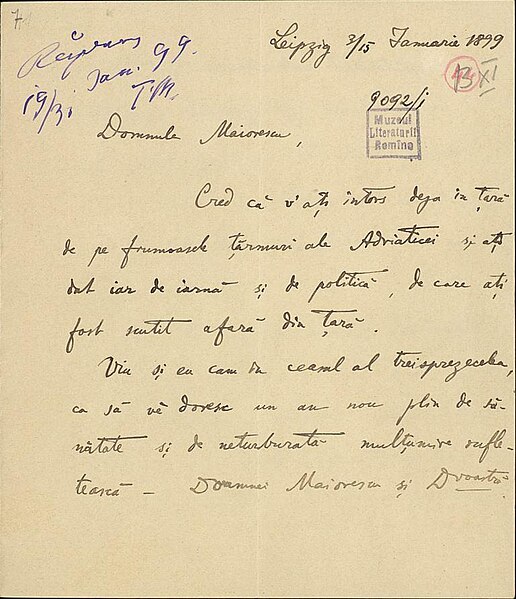 7
Răspuns
19/31 Jan. 99.
T.M.
Leipzig 3/15 Ianuarie 1899
XI
9092/i
Muzeul
Literaturii
Romîne
Domnule Maiorescu,
Cred că v'ați întors deja în țară
de pe frumoasele țărmuri ale Adriaticei și ați
dat iar de iarnă și de politică, de care ați
fost scutit afară din țară.
Viu și eu cam în ceasul al treisprezecelea,
ca să vă doresc un an nou plin de să-
nătate și de neturburată mulțumire sufle-
tească – Doamnei Maiorescu și Dvoastră.